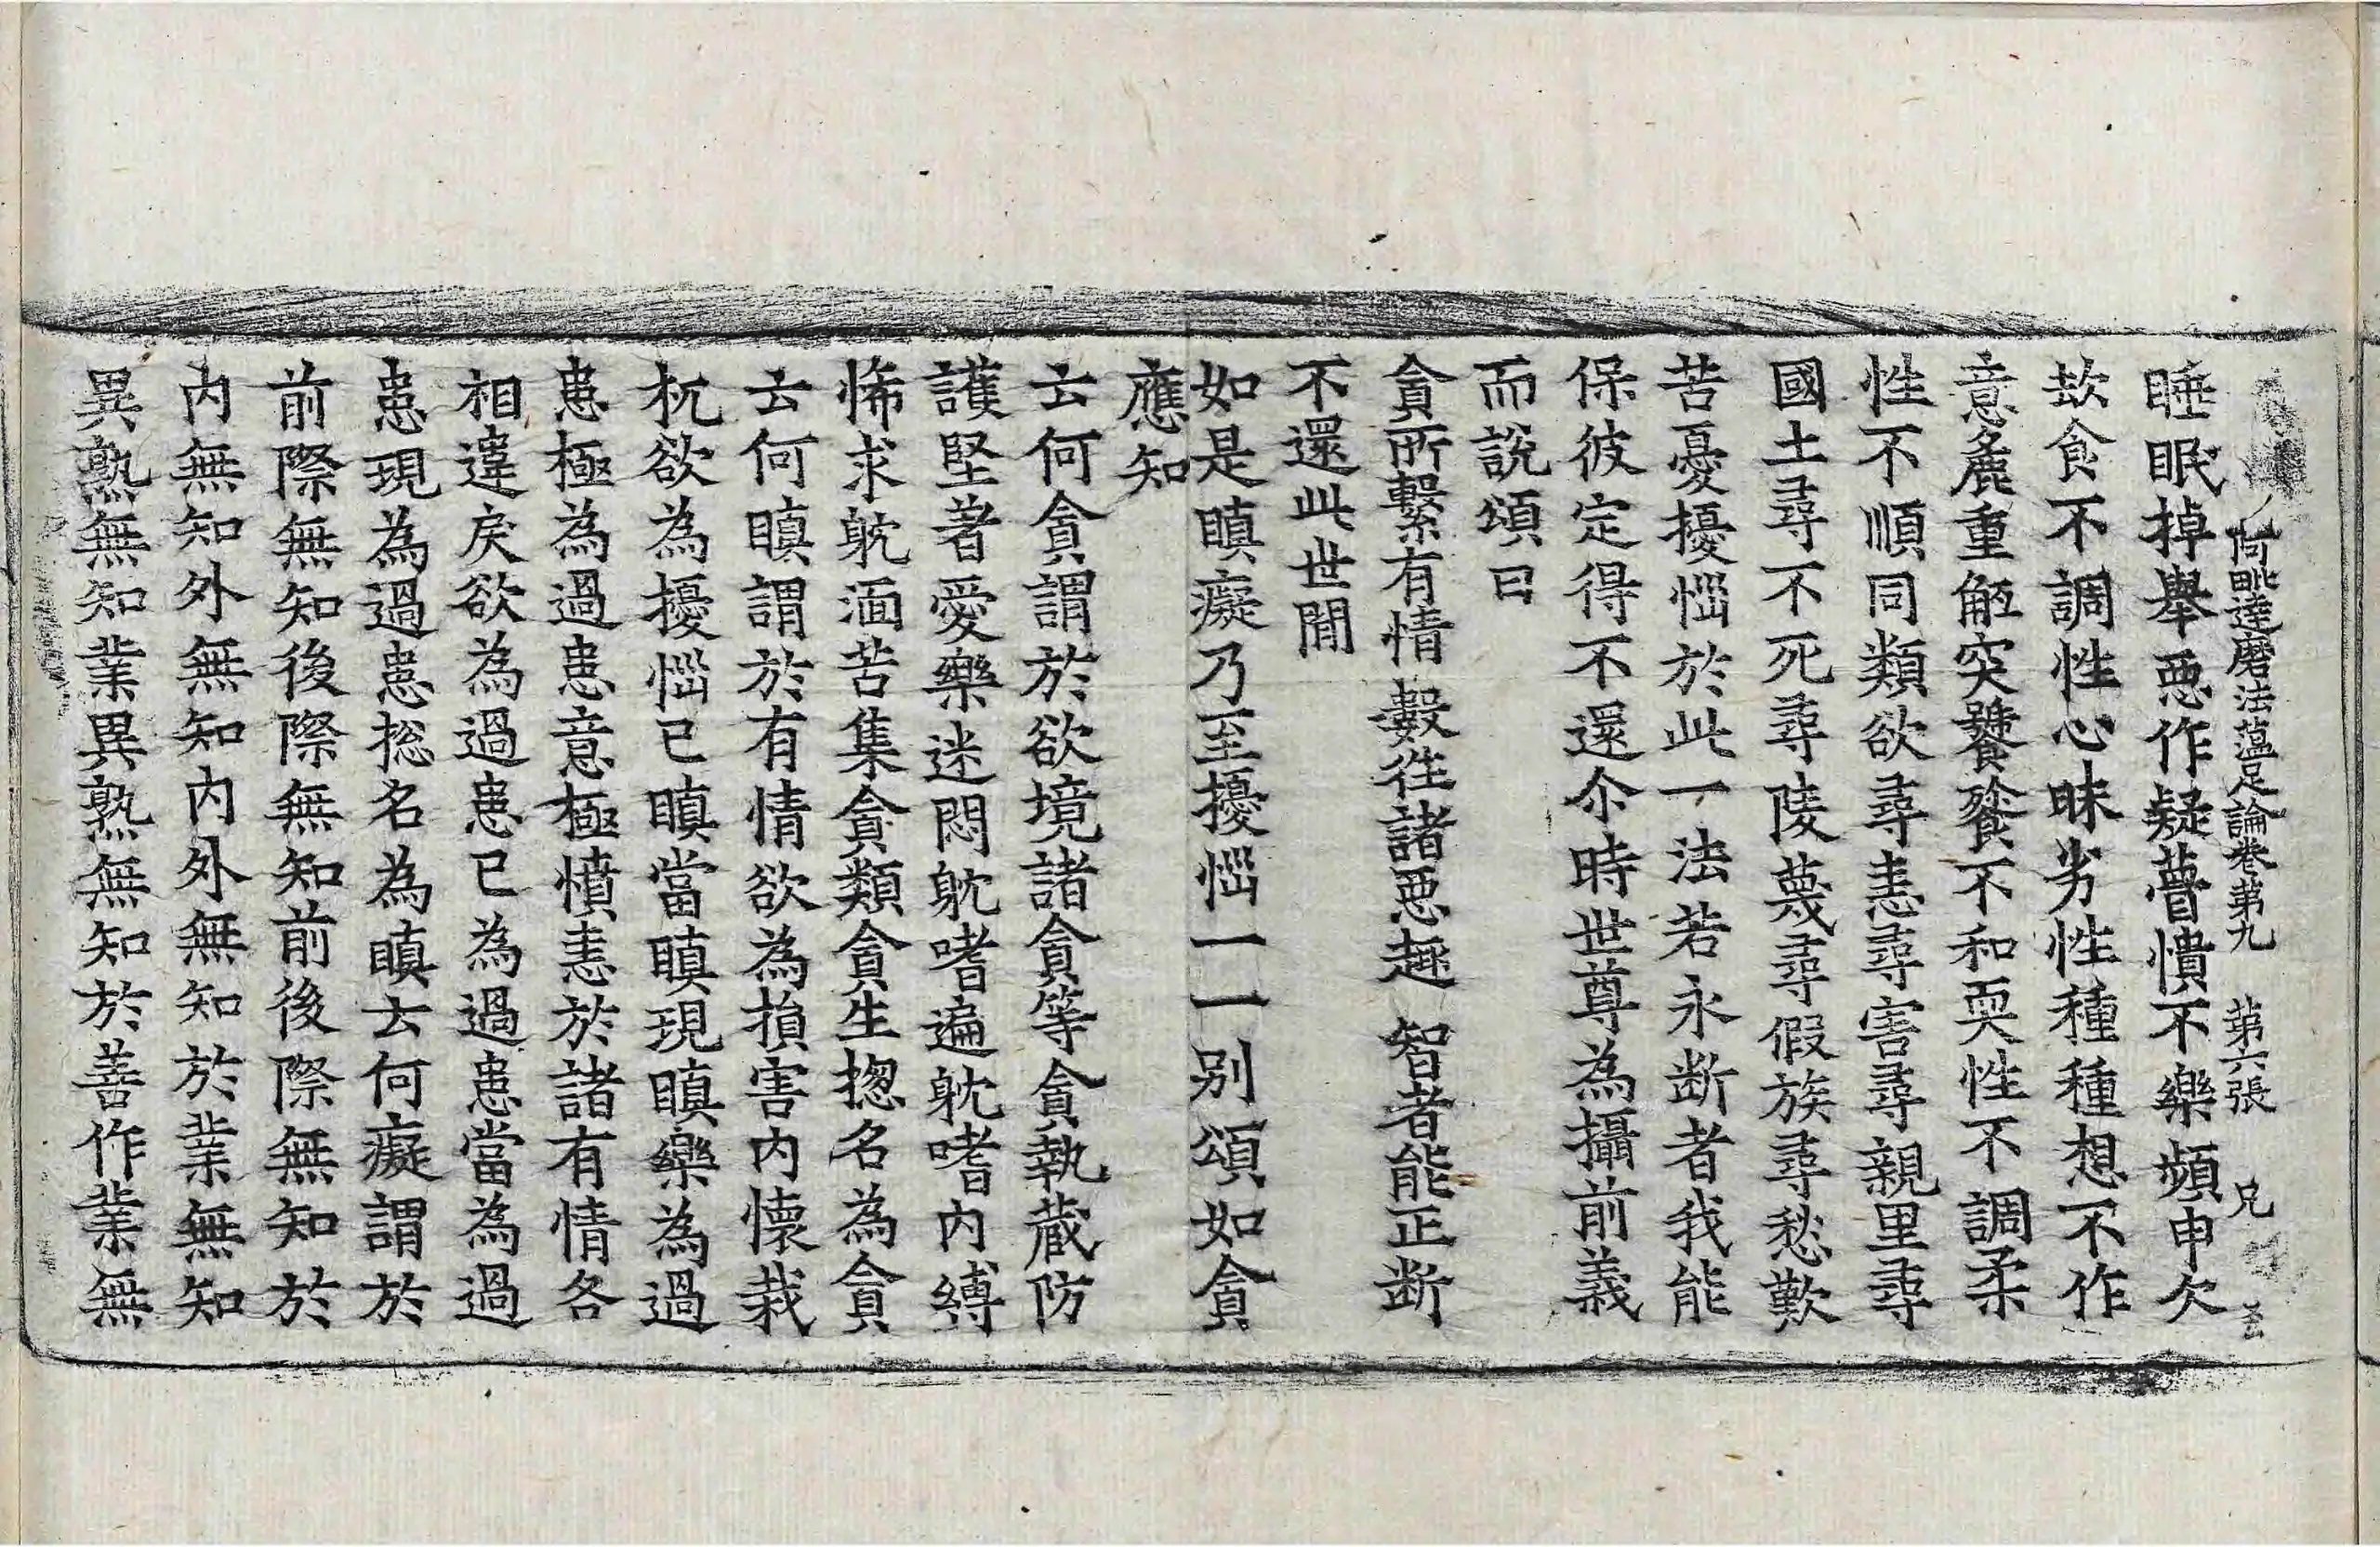 阿毗達磨法蘊足論卷第九　第六張　兄
睡眠掉舉惡作疑瞢憒不樂頻申欠
㰦食不調性心昧劣性種種想不作
意麁重觝突饕餮不和耎性不調柔
性不順同類欲尋恚尋害尋親里尋
國土尋不死尋陵蔑尋假族尋愁歎
苦憂擾惱於此一法若永断者我能
保彼定得不還尒時世尊為攝前義
而說頌曰
貪所繫有情　數徃諸惡趣　智者能正断
不還此世間
如是瞋癡乃至擾惱一一別頌如貪
應知
云何貪謂於欲境諸貪等貪執蔵防
護堅著愛樂迷悶躭嗜遍躭嗜內縛
悕求躭湎苦集貪類貪生揔名為貪
云何瞋謂於有情欲為損害內懷栽
杌欲為擾惱已瞋當瞋現瞋樂為過
患極為過患意極憤恚於諸有情各
相違戾欲為過患已為過患當為過
患現為過患揔名為瞋云何癡謂於
前際無知後際無知前後際無知於
內無知外無知內外無知於業無知
異熟無知業異熟無知於善作業無